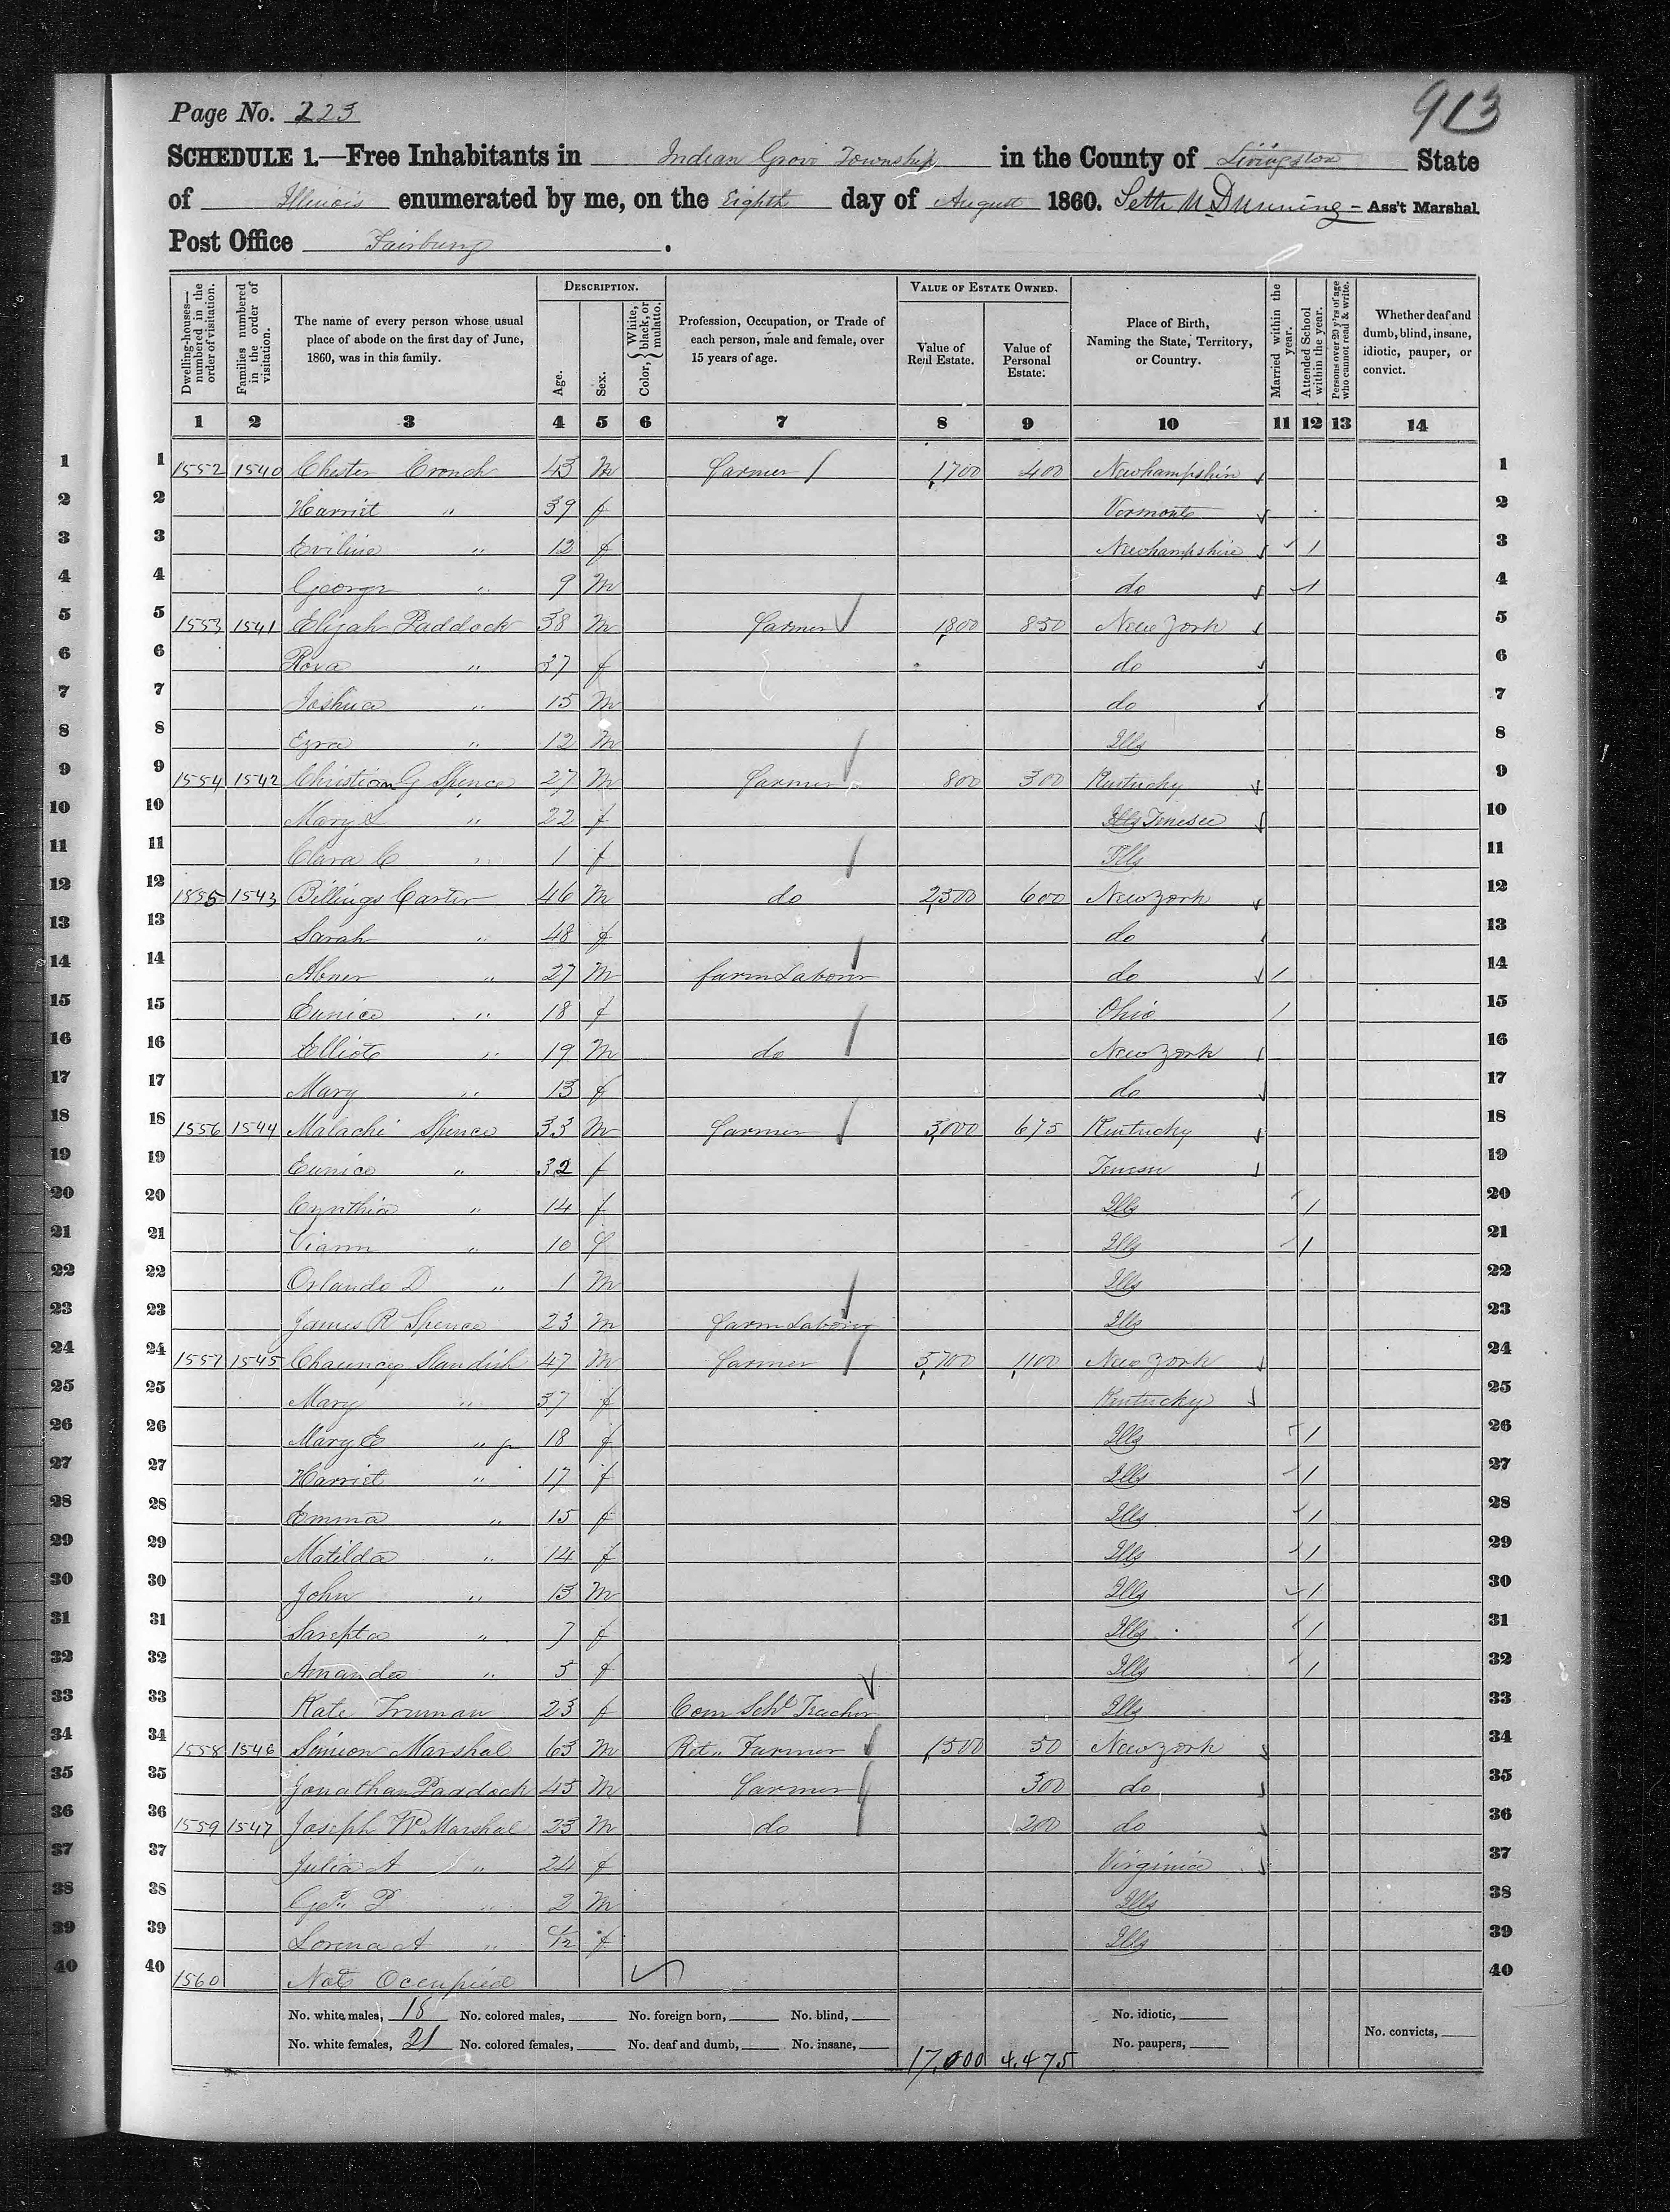 913
Page No. 223
SCHEDULE 1.—Free Inhabitants in Indian Grove Township in the County of Livingston State
of Illinois enumerated by me, on the Eighth day of August 1860. Seth M. Dunning Ass't Marshal.
Post Office Fairbury.
DESCRIPTION. VALUE OF ESTATE OWNED.
Dwelling-houses—numbered in the order of visitation. Families numbered in the order of visitation. The name of every person whose usual place of abode on the first day of June, 1860, was in this family. Age. Sex. Color, White, black, or mulatto. Profession, Occupation, or Trade of each person, male and female, over 15 years of age. Value of Real Estate. Value of Personal Estate. Place of Birth, Naming the State, Territory, or Country. Married within the year. Attended School within the year. Persons over 20 y'rs of age who cannot read & write. Whether deaf and dumb, blind, insane, idiotic, pauper, or convict.
1 2 3 4 5 6 7 8 9 10 11 12 13 14
1 1552 1540 Chester Crouch 43 M farmer / 1,700 400 Newhampshire 1
2 Harriet " 39 f Vermont 2
3 Eviline " 12 f Newhampshire / 3
4 George " 9 M do / 4
5 1553 1541 Elijah Paddock 38 M farmer 1,800 850 New York 5
6 Rova " 37 f do 6
7 Joshua " 15 M do 7
8 Ezra " 12 M Ills 8
9 1554 1542 Christian G Spence 27 M farmer 800 300 Kentucky 9
10 Mary L " 22 f Ills Tenesee 10
11 Clara C " 1 f Ills 11
12 1555 1543 Billings Carter 46 M do 2,500 600 New York 12
13 Sarah " 48 f do 13
14 Abner " 27 M farm Laborer do / 14
15 Eunice " 18 f Ohio / 15
16 Elliott " 19 M do New York 16
17 Mary " 13 f do 17
18 1556 1544 Malachi Spence 33 M farmer 3,000 675 Kentucky 18
19 Eunice " 32 f Tenesee 19
20 Cynthia " 14 f Ills / 20
21 Viann " 10 f Ills / 21
22 Orlando D " 1 M Ills 22
23 James R Spence 23 M farm Laborer Ills 23
24 1557 1545 Chauncey Standish 47 M farmer 5,700 1,100 New York 24
25 Mary " 37 f Kentucky 25
26 Mary E " jr 18 f Ills / 26
27 Harriet " 17 f Ills / 27
28 Emma " 15 f Ills / 28
29 Matilda " 14 f Ills / 29
30 John " 13 M Ills / 30
31 Sarepta " 7 f Ills / 31
32 Amanda " 5 f Ills / 32
33 Kate Truman 23 f Com Schl Teacher Ills 33
34 1558 1546 Simeon Marshal 63 M Ret" Farmer 1,500 50 New York 34
35 Jonathan Paddock 45 M farmer 300 do 35
36 1559 1547 Joseph W Marshal 23 M do 200 do 36
37 Julia A " 24 f Virginia 37
38 Geo. P " 2 M Ills 38
39 Lorena A " f Ills 39
40 1560 Not Occupied 40
No. white males, 18 No. colored males, No. foreign born, No. blind, No. idiotic,
No. white females, 21 No. colored females, No. deaf and dumb, No. insane, 17,000 4,475 No. paupers, No. convicts,